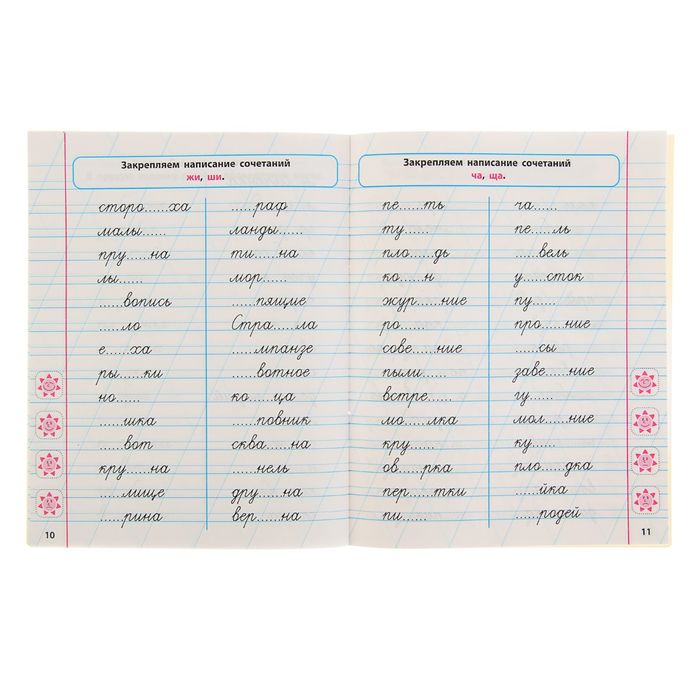 Закрепляем написание сочетаний
жи, ши.
сторо......ха
малы......
пру......на
лы......
......вопись
......ло
е......ха
ры......ки
но......
......шка
......вот
кру......на
......лище
......рина
......раф
ланды......
ти......на
мор......
......пящие
Стра......ла
......мпанзе
......вотное
ко......ца
......повник
сква......на
......нель
дру......на
вер......на
10
Закрепляем написание сочетаний
ча, ща.
пе......ть
ту......
пло......дь
ко......н
жур......ние
ро......
сове......ние
пыли......
встре......
мо......лка
кру......
ов......рка
пер......тки
пи......
ча......
пе......ль
......вель
у......сток
пу......
про......ние
......сы
заве......ние
гу......
мол......ние
ку......
пло......дка
......йка
......родей
11